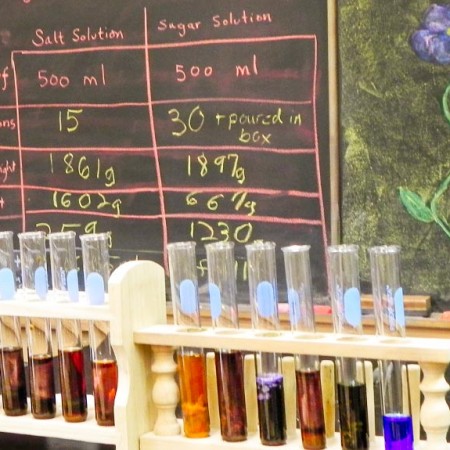 Salt Solution Sugar Solution
500 ml 500 ml
15 30 + poured in
box
1861g 1897g
1602g 667g
259g 1230